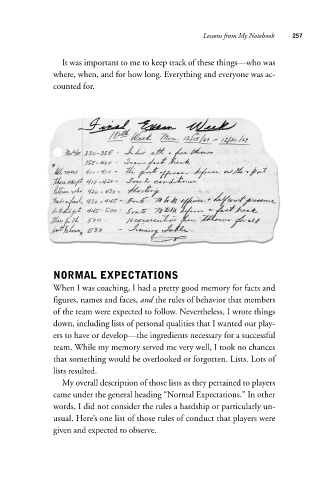 Lessons from My Notebook 257
It was important to me to keep track of these things—who was
where, when, and for how long. Everything and everyone was ac-
counted for.
Final Exam Week
10th Week Mon. 12/15/69 - 12/20/69
330-355 - Indiv att. + free throws
355-400 - Team fast break
400-410 -
410-420 -
420-430 - Shooting
430-445 -
445-500 - fast break
500 - 10 consecutive free throws for all
530 - Training Table
NORMAL EXPECTATIONS
When I was coaching, I had a pretty good memory for facts and
figures, names and faces, and the rules of behavior that members
of the team were expected to follow. Nevertheless, I wrote things
down, including lists of personal qualities that I wanted our play-
ers to have or develop—the ingredients necessary for a successful
team. While my memory served me very well, I took no chances
that something would be overlooked or forgotten. Lists. Lots of
lists resulted.
My overall description of those lists as they pertained to players
came under the general heading “Normal Expectations.” In other
words, I did not consider the rules a hardship or particularly un-
usual. Here’s one list of those rules of conduct that players were
given and expected to observe.